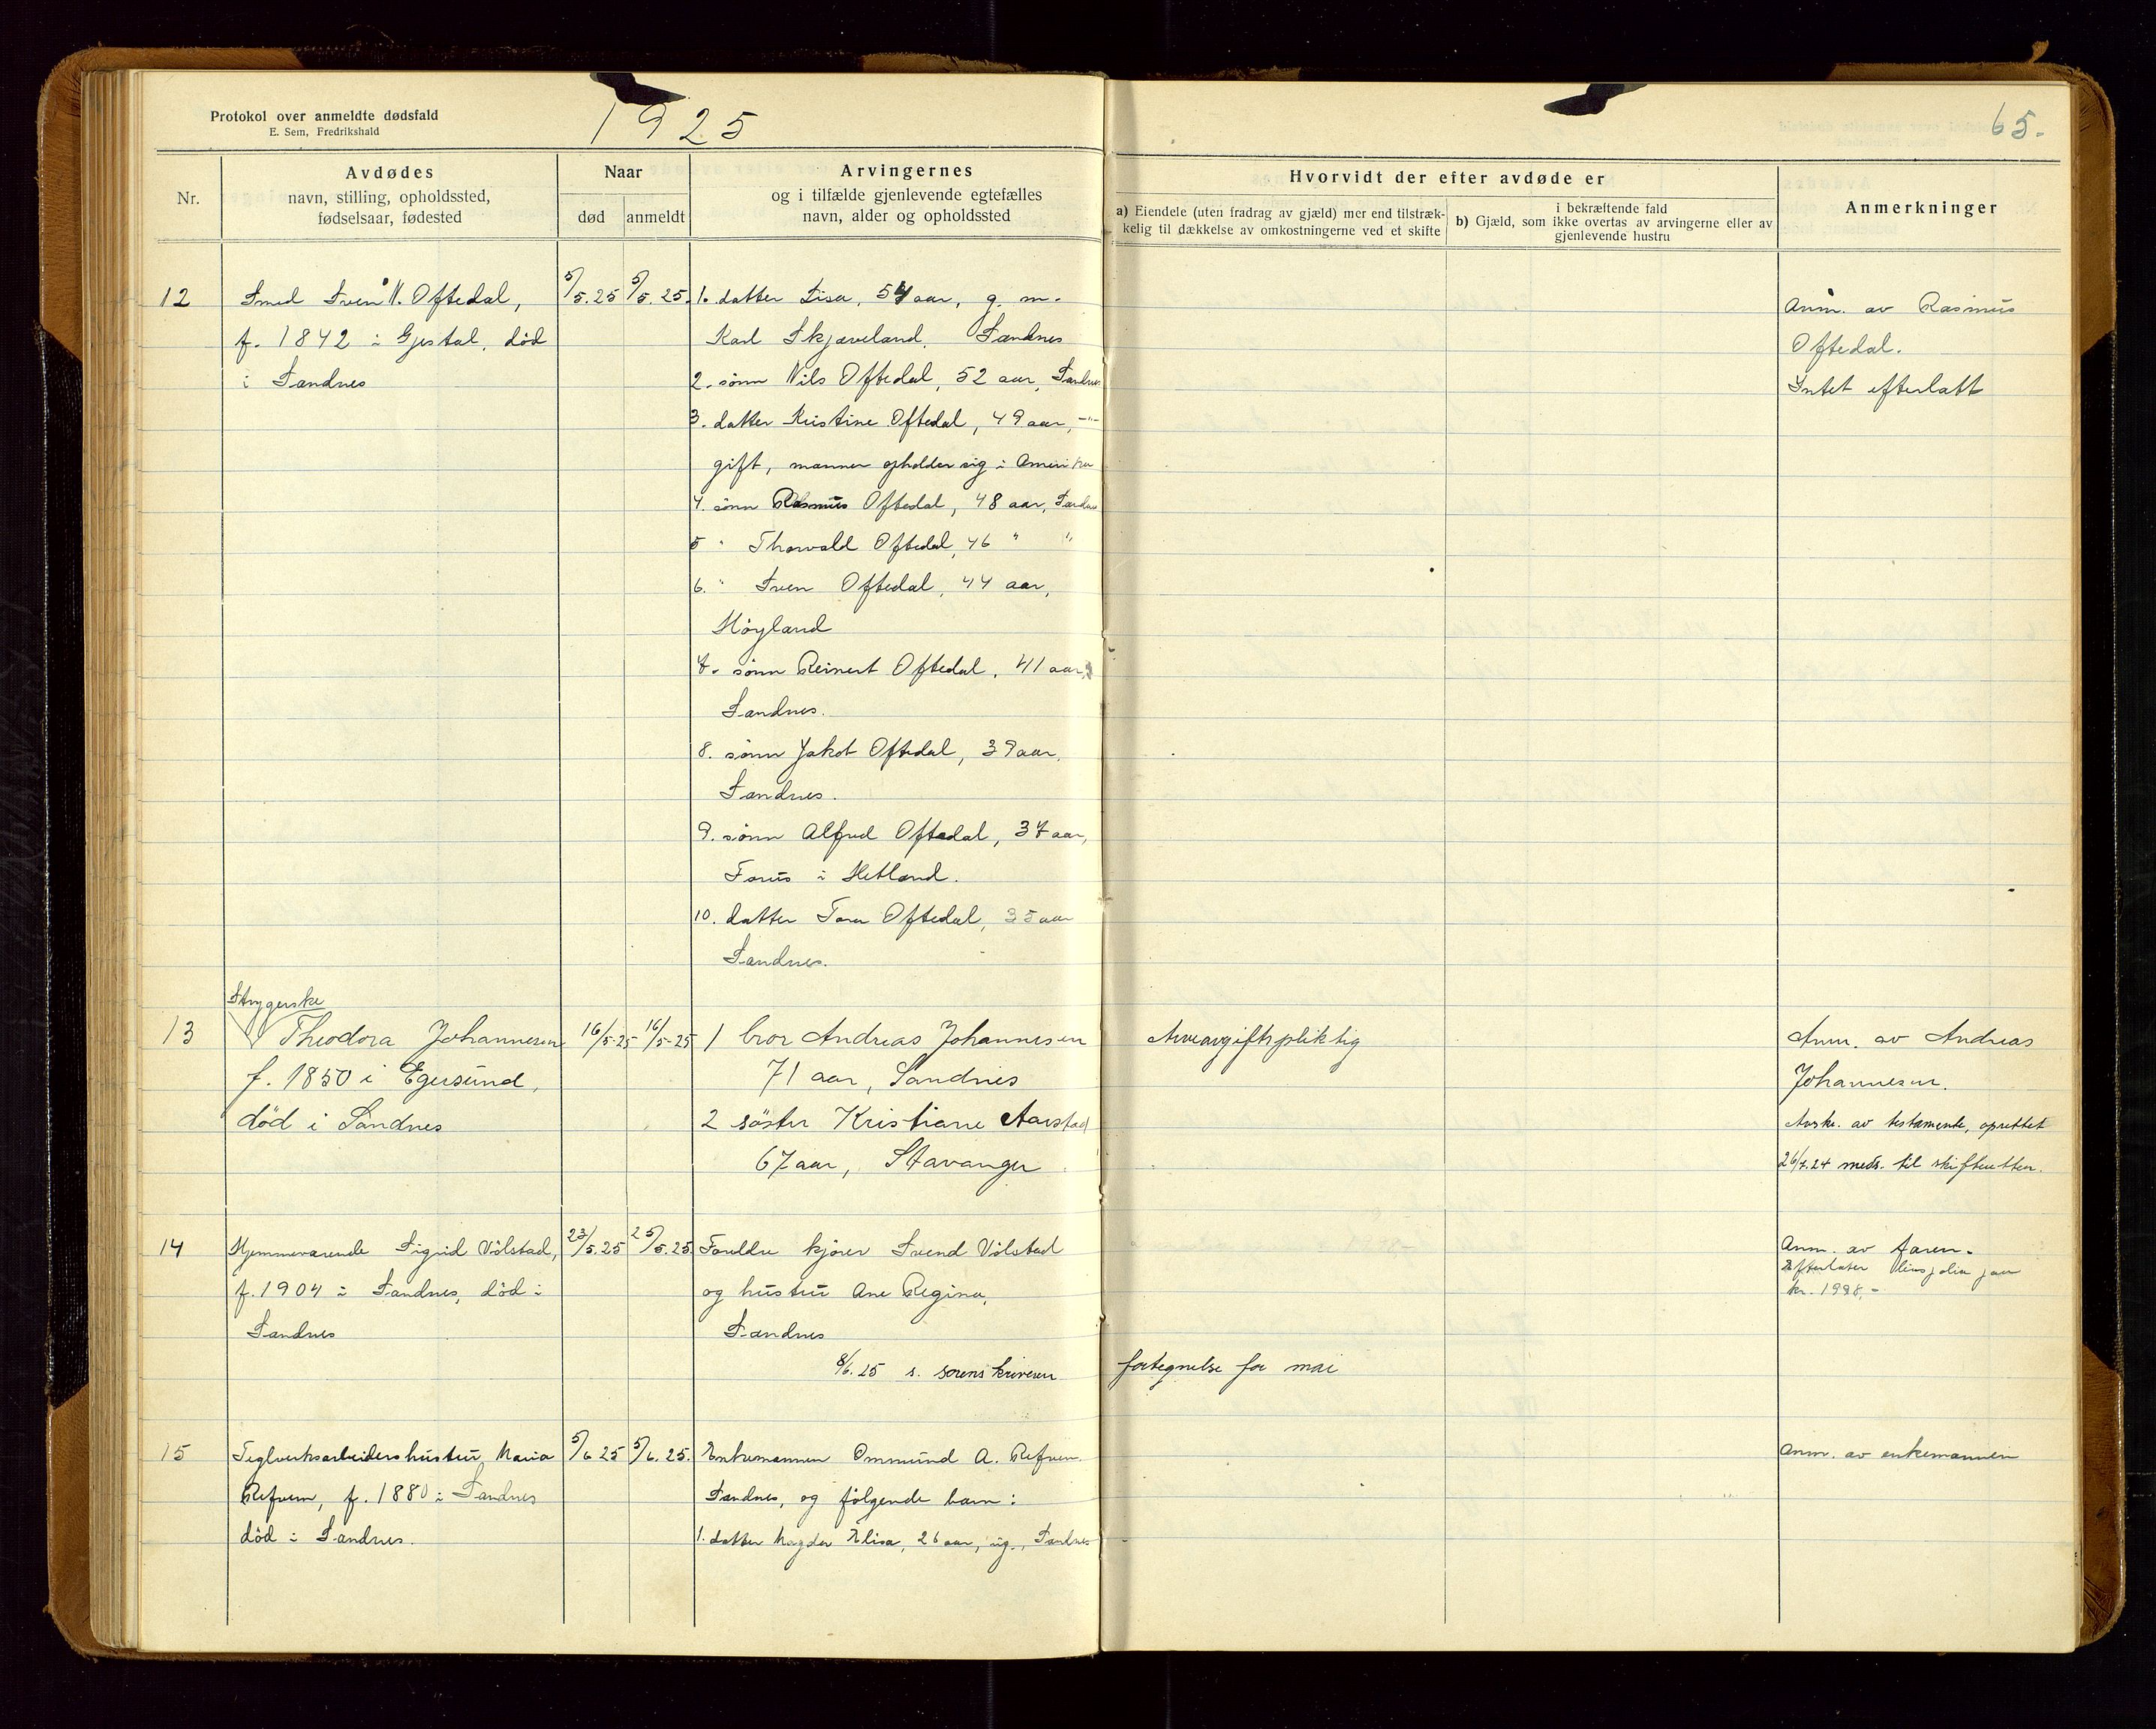 Protokol over anmeldte dødsfald
E. Sem, Fredrikshald
1925
65.
Nr.
Avdødes
navn, stilling, opholdssted,
fødselsaar, fødested
Naar
død
anmeldt
Arvingernes
og i tilfælde gjenlevende egtefælles
navn, alder og opholdssted
Hvorvidt der efter avdøde er
a) Eiendele (uten fradrag av gjæld) mer end tilstræk-
kelig til dækkelse av omkostningerne ved et skifte
i bekræftende fald
b) Gjæld, som ikke overtas av arvingerne eller av
gjenlevende hustru
Anmerkninger
12
Smed Sven N. Oftedal,
f. 1842 i Gjestal, død
i Sandnes
5/5.25
5/5.25.
1. datter Lisa, 54 aar, g. m.
Karl Skjæveland, Sandnes
2. sønn Nils Oftedal, 52 aar, Sandnes
3. datter Kristine Oftedal, 49 aar, -"-
gift, mannen opholder sig i Amerika
4. sønn Rasmus Oftedal, 48 aar, Sandnes
5 " Thorvald Oftedal, 46 " "
6. " Sven Oftedal, 44 aar,
Höyland
7. sønn Reinert Oftedal, 41 aar,
Sandnes.
8. sønn Jakob Oftedal, 39 aar,
Sandnes.
9. sønn Alfred Oftedal, 37 aar,
Forus i Hetland.
10. datter Tora Oftedal, 35 aar
Sandnes.
Anm. av Rasmus
Oftedal.
Intet efterlatt
13
Strygerske
Theodora Johannesen
f. 1850 i Egersund,
död i Sandnes
16/5-25
16/5-25
1 bror Andreas Johannesen
71 aar, Sandnes
2 söster Kristiane Aarstad
67 aar, Stavanger
Arveavgiftspliktig
Anm. av Andreas
Johannesen.
Avskr. av testamente, oprettet
26/7.24 meds. til skifteretten.
14
Hjemmeværende Sigrid Völstad,
f. 1904 i Sandnes, död i
Sandnes
23/5.25
25/5.25
Foreldre kjører Svend Völstad
og hustru Ane Regine,
Sandnes
Anm. av faren.
Efterlater
kr. 1998,-
8/6.25 s. sorenskriveren
fortegnelse for mai
15
Teglverksarbeidershustru Maria
Refvem, f. 1880 i Sandnes
död i Sandnes.
5/6 25
5/6.25.
Enkemannen Ommund A. Refvem
Sandnes, og følgende barn:
1. datter Magda Elisa, 26 aar, ug., Sandnes
Anm. av enkemannen